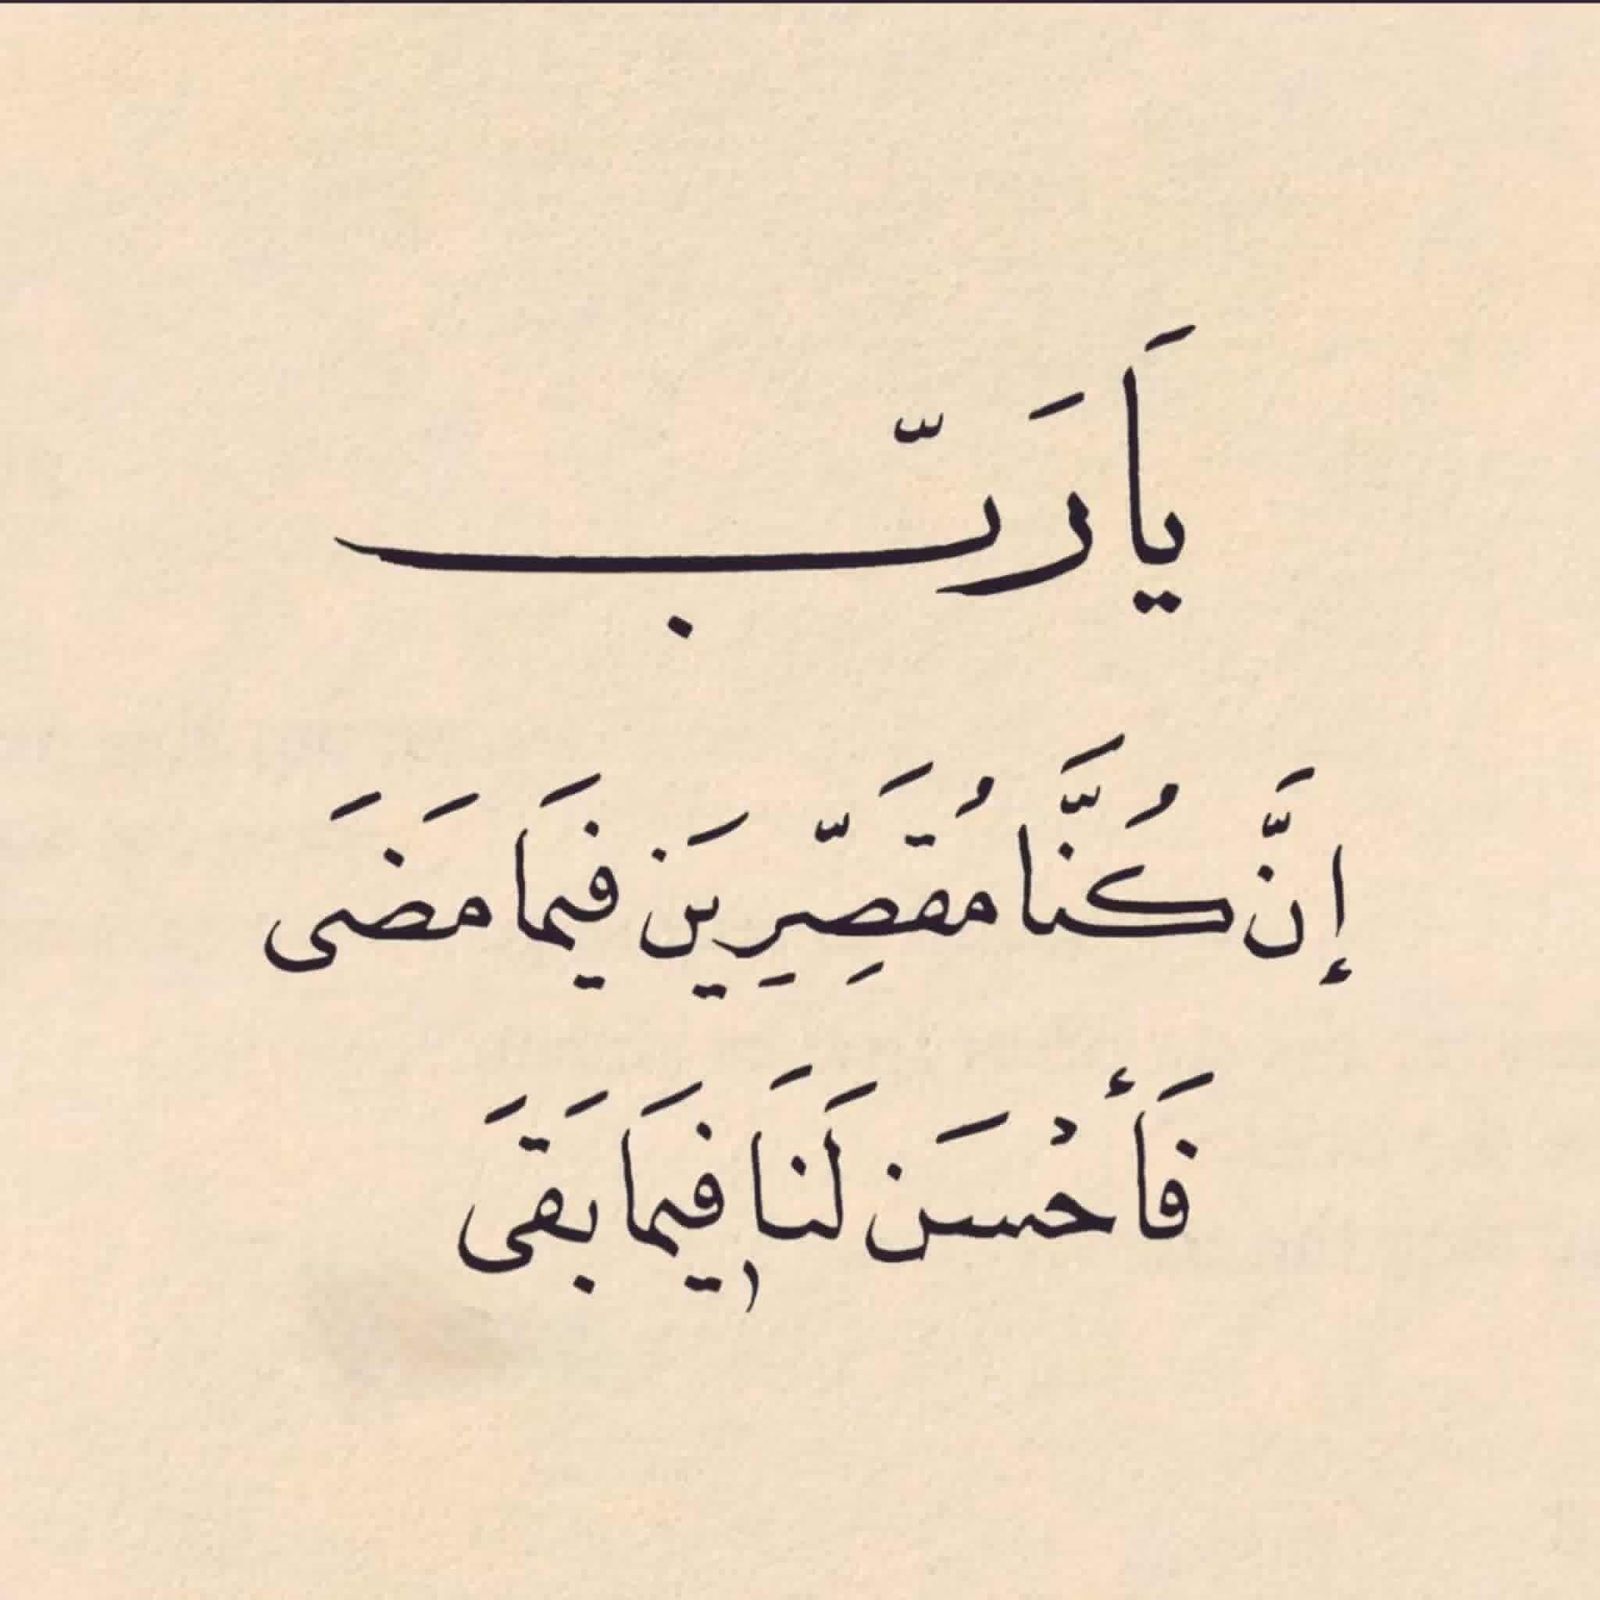 يَا رَبّ
إنَّ كُنَّا مُقَصِّرِيَن فيمَا مَضَى
فَأَحْسَن لَنَا فِيمَا بَقَى